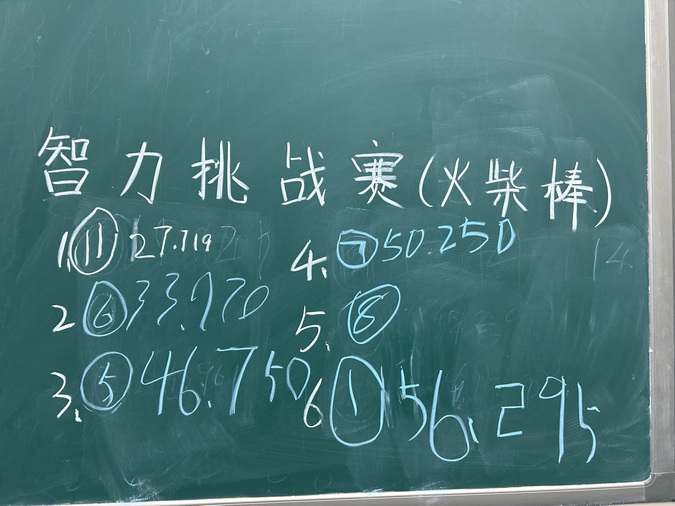 智力挑战赛(火柴棒)
1.⑪27.719
2⑥33.970
3.⑤46.750
4.⑦50.250
5.⑧
6①56.295
14